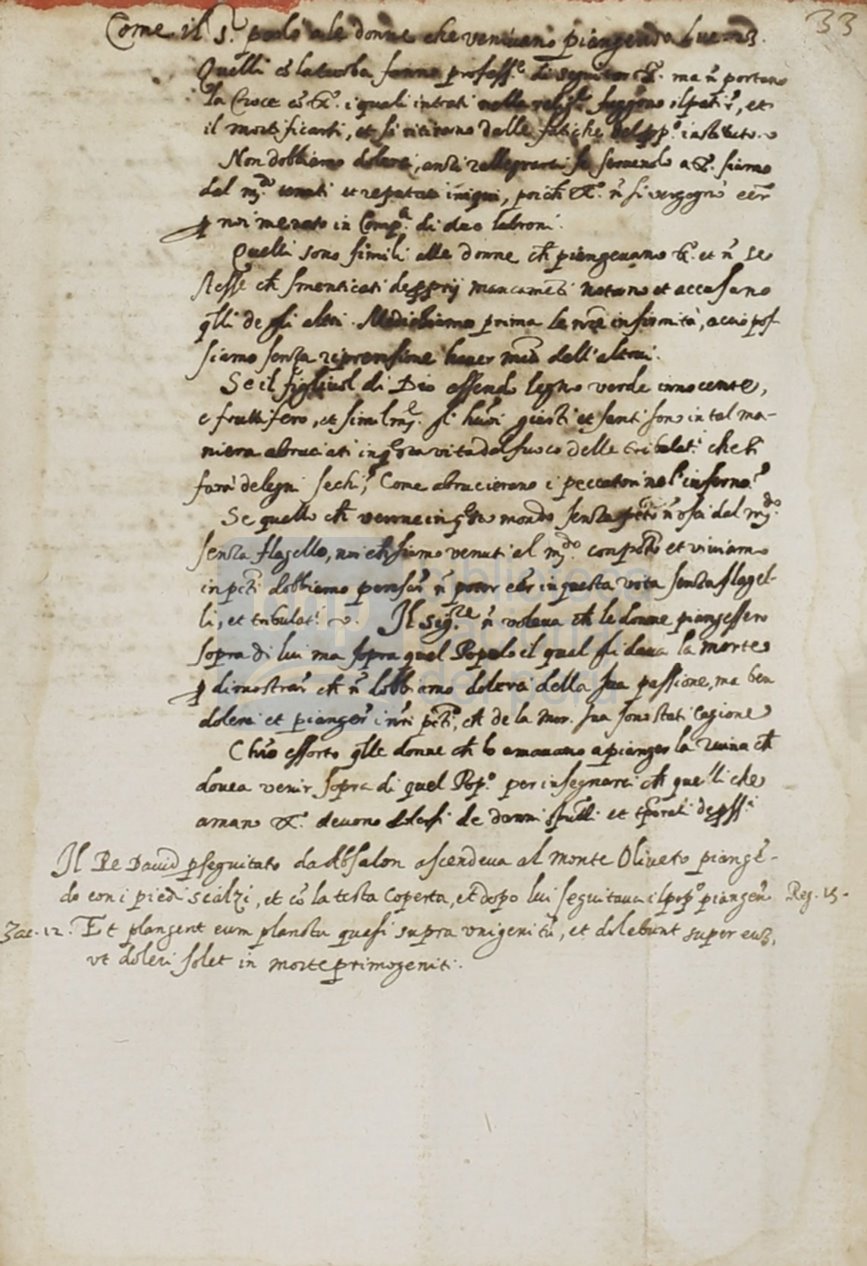 33
Come il S.r parlò a le donne che venivano piangendo
Quelli cō la turba fanno profess.e di seguitar X.o ma ñ portano
la Croce cō X.o i quali intrati nella relig.e fuggono il patir, et
il mortificarsi, et si ritirano dalle fatiche del pp.o instituto.
Non dobbiamo dolerci, anzi rallegrarci se servendo a X.o siamo
dal m.do tenuti et reputati iniqui, poich X.o ñ si vergognò eēr
ꝑ noi menato in Comp.a di duo ladroni.
Quelli sono simili alle donne ch piangevano X.o et ñ se
stesse ch smenticati de ꝓprij mancamēti notano et accusano
q̃lli de gli altri. Medichiamo prima la nr̃a infirmità, acciò pos-
siamo senza riprensione haver m̃ia dell'altrui.
Se il figliuol di Dio essendo legno verde innocente,
e fruttifero, et similm.e gli huoī giusti et santi sono in tal ma-
niera abruciati in q̃sta vita dal fuoco delle tribulat.i che si
farà de legni sechi? Come abrucierano i peccatori nel'inferno?
Se quello ch venne in q̃sto mondo senza pctō ñ uscì dal m.do
senza flagello, noi ch siamo venuti al m.do con pctō et viviamo
in pcti dobbiamo pensar ñ poter eēr in questa vita senza flagel-
li, et tribulat.i Il sig.re ñ voleva ch le donne piangessero
sopra di lui ma sopra quel Populo il qual gli dava la morte
ꝑ dimostrar ch ñ dobbiamo dolerci della sua passione, ma ben
dolerci et pianger i nr̃i pcti, ch de la mor. sua sono stati cagione
Chr̃o essortò q̃lle donne ch lo amavano a pianger la ruina ch
dovea venir sopra di quel Pop.o per insegnarci ch quelli che
amano X.o devono dolersi de danni spũali et tp̃orali de ꝓss.i
Il Re David ꝑseguitato da Absalon ascendeva al monte Oliveto piangē-
do con i piedi scalzi, et cō la testa coperta, et dopo lui seguitava il pop.o piangen. Reg. 15.
Zac. 12. Et plangent eum planctu quasi supra unigenitū, et dolebunt super eum,
ut doleri solet in morte primogeniti.